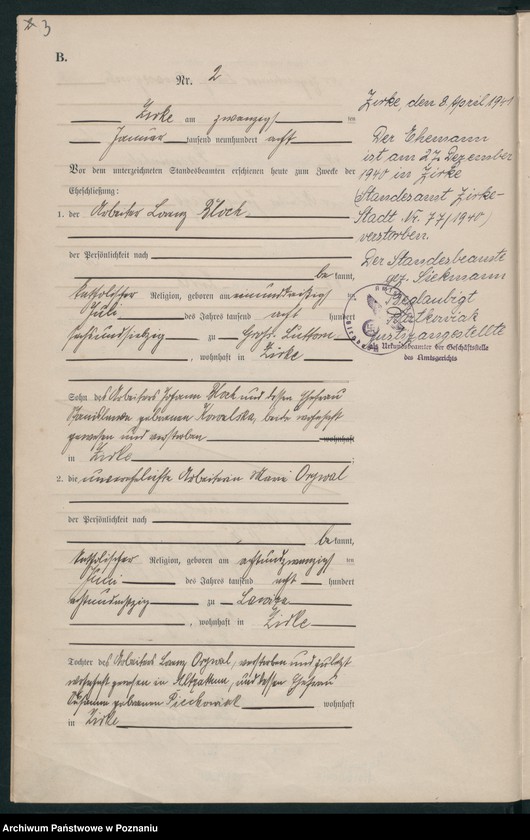 3
B.
Nr. 2
Zirke am zwanzigsten
Januar tausend neunhundert acht
Vor dem unterzeichneten Standesbeamten erschienen heute zum Zwecke der
Eheschließung:
1. der Arbeiter Lorenz Block
der Persönlichkeit nach
bekannt,
katholischer Religion, geboren am neunundzwanzigsten
Juli des Jahres tausend acht hundert
sechsundsiebzig zu Groß Luttom
, wohnhaft in Zirke
Sohn des Arbeiters Johann Block und dessen Ehefrau
Stanislawa geborenen Kowalska, beide wohnhaft
gewesen und verstorben wohnhaft
in Zirke
2. die unverehelichte Arbeiterin Marie Orywal
der Persönlichkeit nach
bekannt,
katholischer Religion, geboren am achtundzwanzigsten
des Jahres tausend acht hundert
achtundachtzig zu
, wohnhaft in Zirke
Tochter des Arbeiters Lorenz Orywal, verstorben und zuletzt
wohnhaft gewesen in Altgattum, und dessen Ehefrau
geborenen wohnhaft
in Zirke
Zirke, den 8. April 1941
Der Ehemann
ist am 27. Dezember
1940 in Zirke
(Standesamt Zirke-
Stadt Nr. 77/1940)
verstorben.
Der Standesbeamte
gez. Siekmann
Beglaubigt
Justizangestellte
als Urkundsbeamter der Geschäftsstelle
des Amtsgerichts
Archiwum Państwowe w Poznaniu